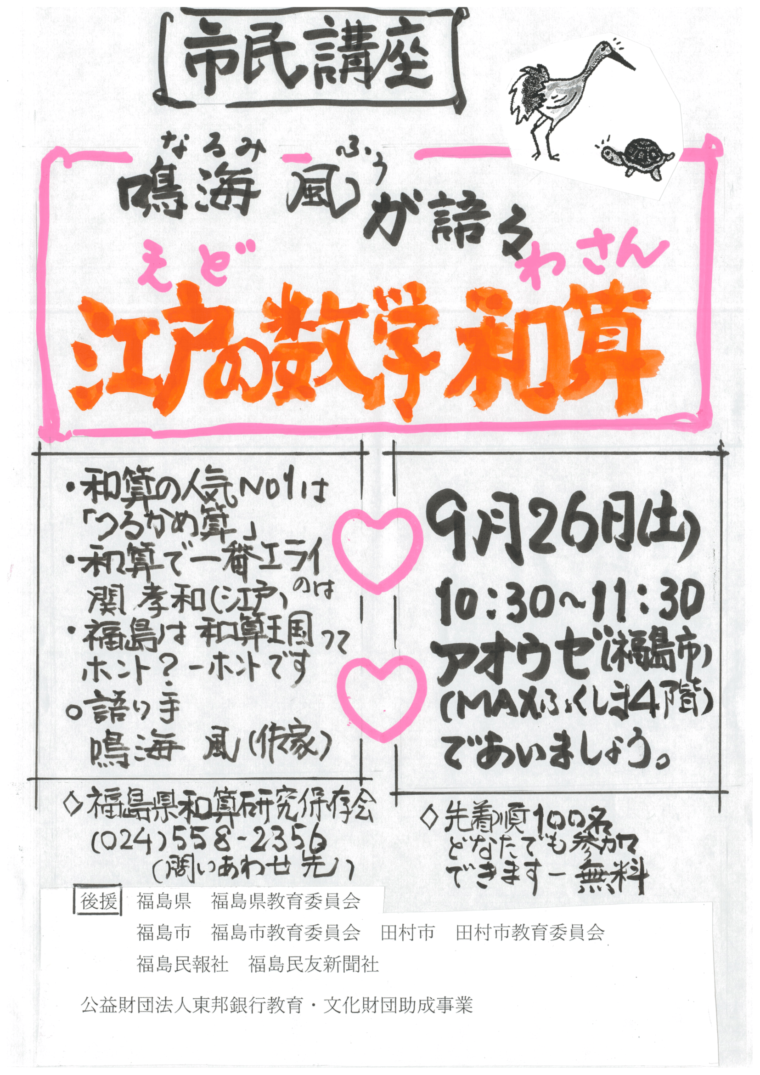 市民講座
なるみ ふう
鳴海 風が語る
えど わさん
江戸の数学 和算
・和算の人気NO1は
「つるかめ算」
・和算で一番エライ
のは
関 孝和(江戸)
・福島は和算王国って
ホント?ーホントです
○語り手
鳴海 風(作家)
9月26日(土)
10:30～11:30
アオウゼ(福島市)
(MAXふくしま4階)
であいましょう。
◇福島県和算研究保存会
(024)558-2356
(問いあわせ先)
◇先着順100名
どなたでも参加
できますー無料
後援 福島県 福島県教育委員会
福島市 福島市教育委員会 田村市 田村市教育委員会
福島民報社 福島民友新聞社
公益財団法人東邦銀行教育・文化財団助成事業